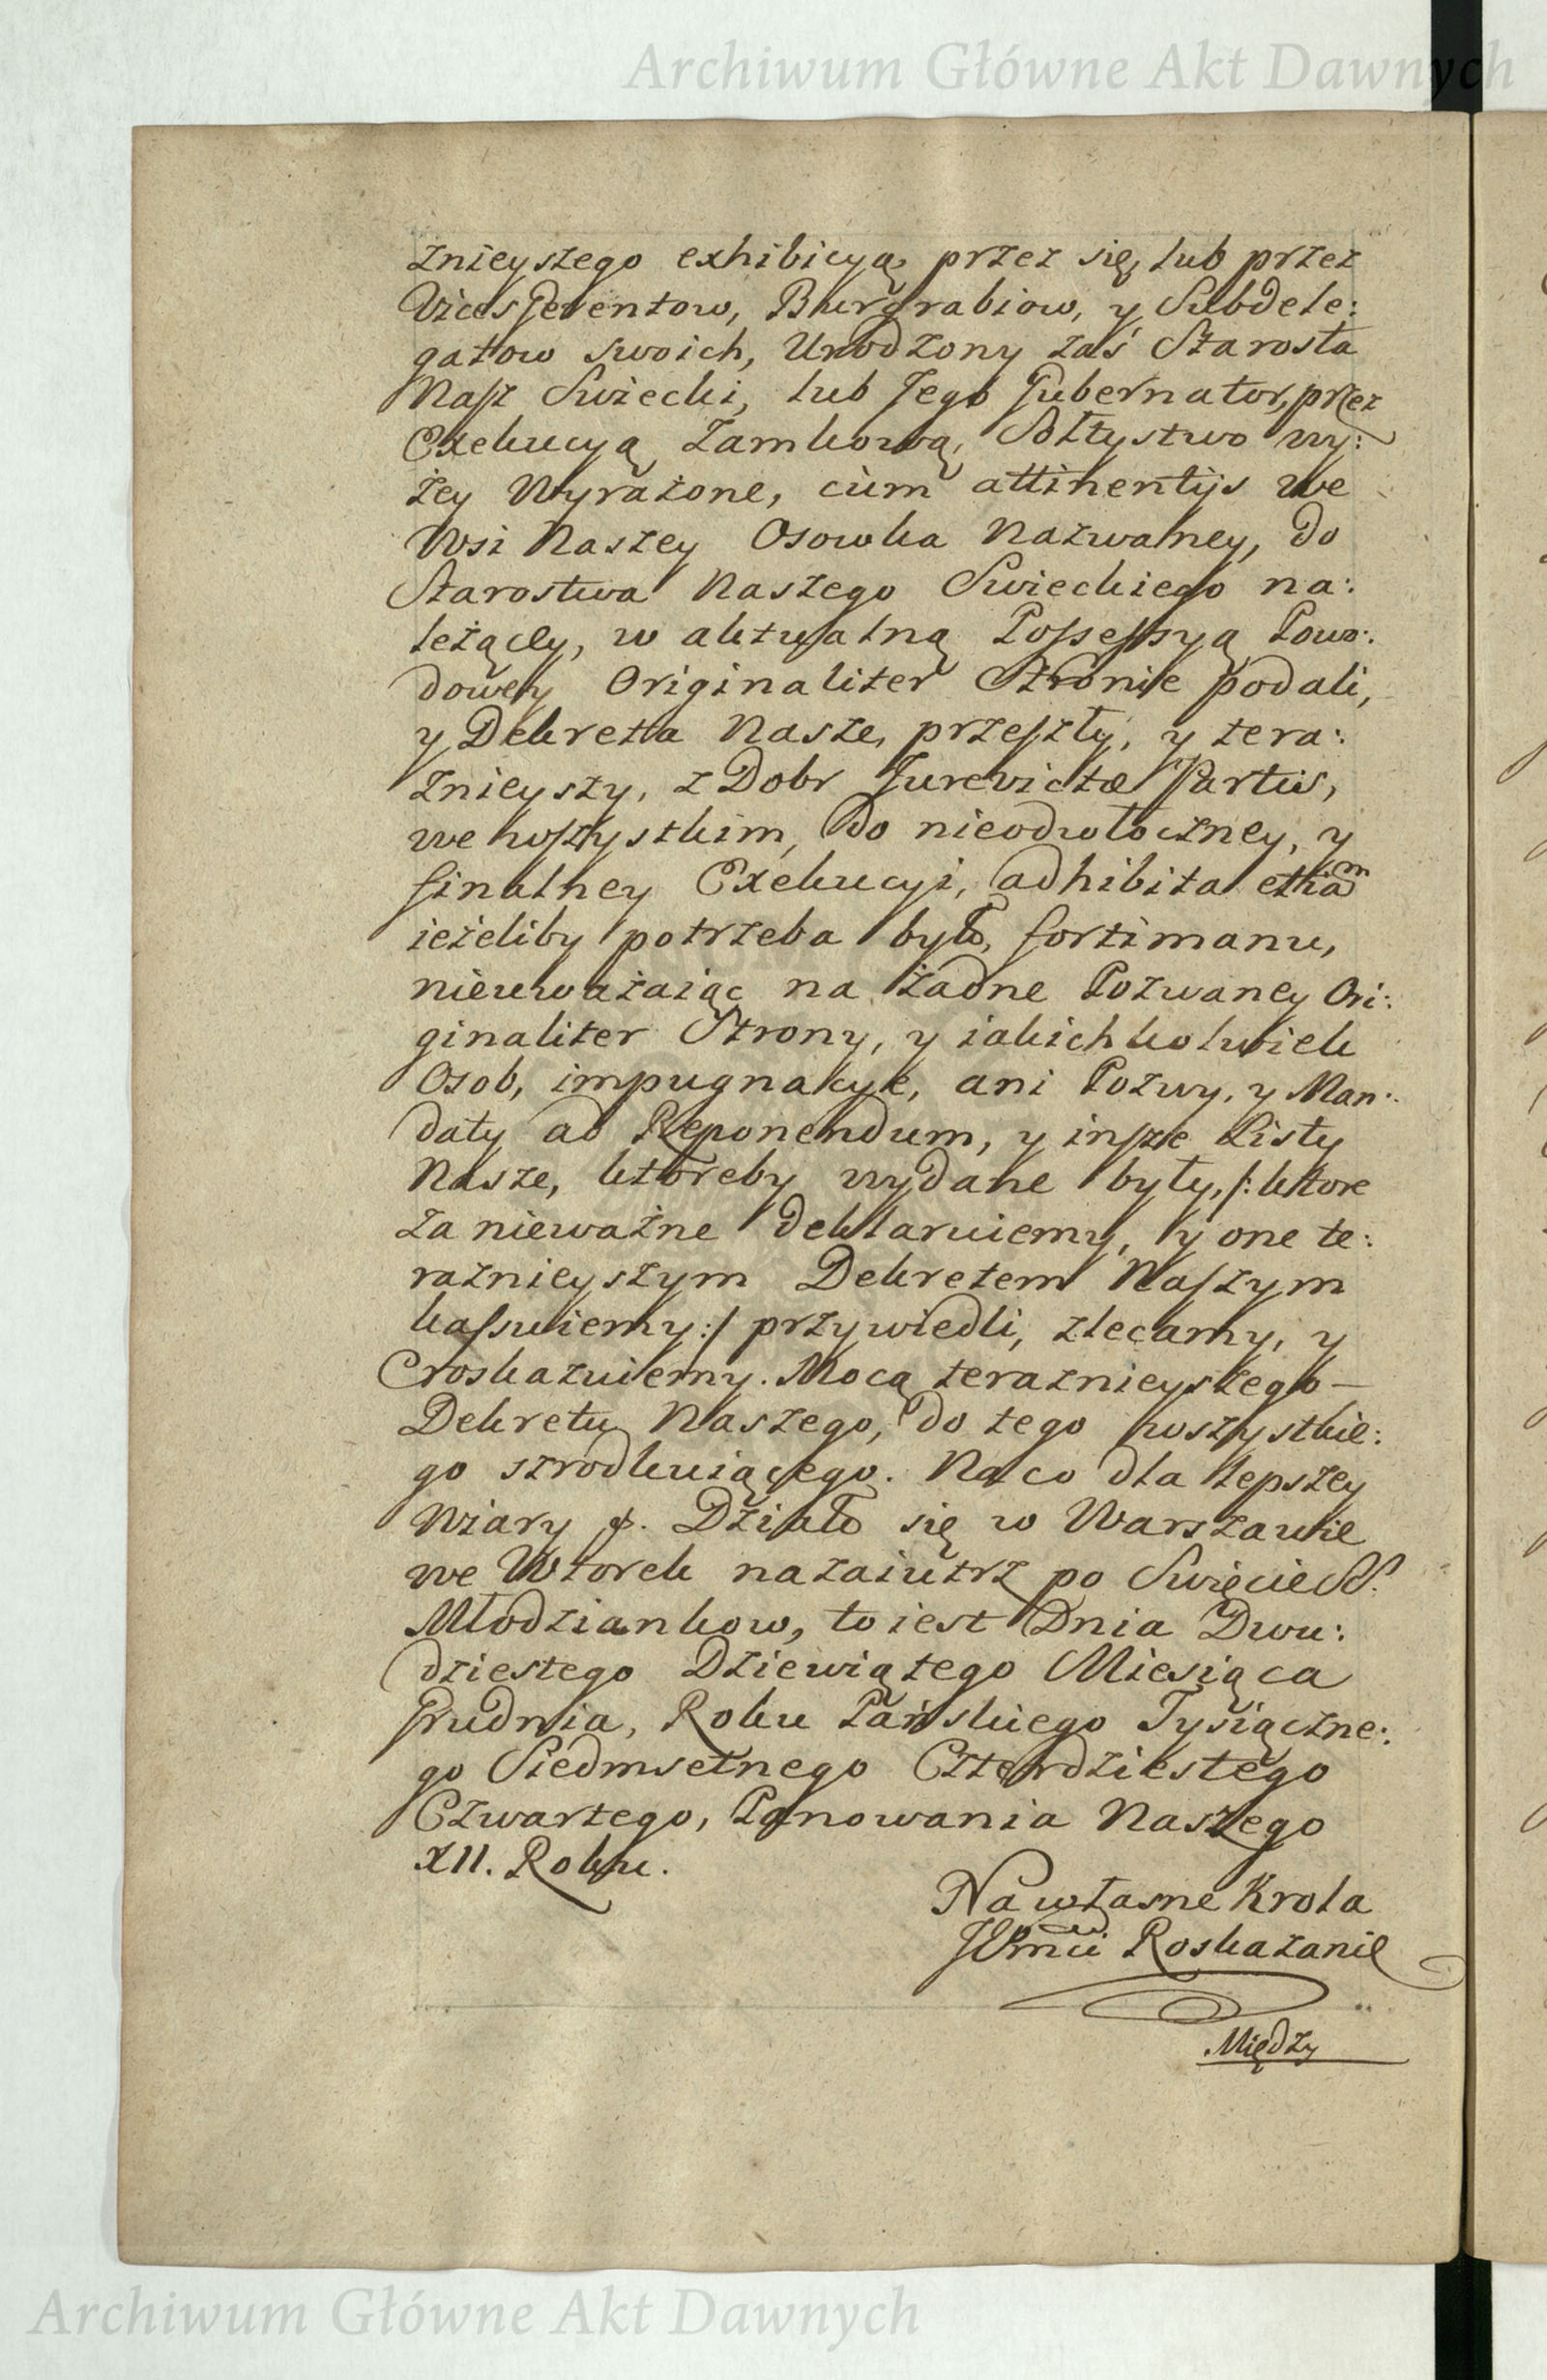 Archiwum Główne Akt Dawnych
znieyszego exhibicyą, przez się, lub przez
Vices Gerentow, Burgrabiow, y Subdele:
gatow swoich, Urodzony zaś Starosta
Nasz Swiecki, lub Jego Gubernator, przez
Exekucyą Zamkową, Sołtystwo wy:
żey Wyrażone, cum attinentijs we
Wsi Naszey Osowka Nazwaney, do
Starostwa Naszego Swieckiego na:
leżącey, w aktualną Possessyą Powo:
dowey Originaliter Stronie podali,
y Dekreta Nasze, przeszły, y tera:
znieyszy, z Dobr Jurevictæ Partis,
we wszystkim, do nieodwłoczney, y
finalney Exekucyi, adhibita etiam
ieżeliby potrzeba było, forti manu,
nieuważaiąc na żadne Pozwaney Ori:
ginaliter Strony, y iakichkolwiek
Osob, impugnacye, ani Pozwy, y Man:
daty ad Reponendum, y insze Listy
Nasze, ktoreby wydane były, /: ktore
za nieważne deklaruiemy, y one te:
raznieyszym Dekretem Naszym
kassuiemy :/ przywiedli, zlecamy, y
roskazuiemy. Mocą teraznieyszego —
Dekretu Naszego, do tego wszystkie:
go szrodkuiącego. Na co dla lepszey
Wiary &. Działo się w Warszawie
we Wtorek nazaiutrz po Swięcie SS.
Młodziankow, to iest Dnia Dwu:
dziestego Dziewiątego Miesiąca
Grudnia, Roku Pańskiego Tysiączne:
go Siedmsetnego Czterdziestego
Czwartego, Panowania Naszego
XII. Roku.
Na własne Krola
JEmci Roskazanie
Między
Archiwum Główne Akt Dawnych